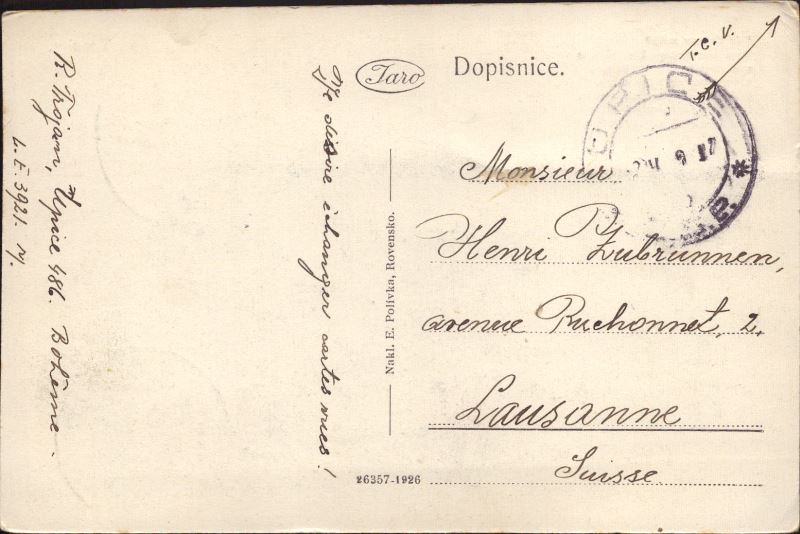 R. Trojan, Úpice 486. Bohême.
L. E 3921. N.
Je désire échanger cartes vues!
Taro
Dopisnice.
T.C.V.
ÚPICE
Nakl. E. Polívka, Rovensko.
26357-1926
Monsieur
Henri Zubrunnen,
avenue Ruchonnet, 2.
Lausanne
Suisse.